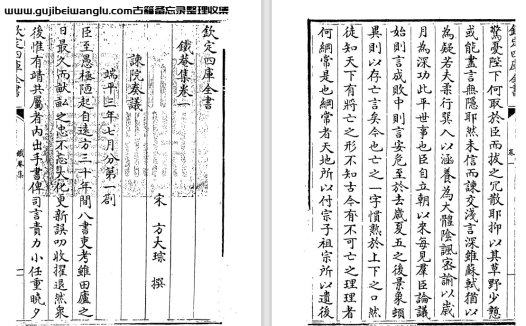 www.gujibeiwanglu.com古籍备忘录整理收集
欽定四庫全書
鐵菴集卷一
宋 方大琮 撰
諫院奏議
端平三年七月分第一劄
臣至愚極陋起自遠方三十年間八書吏考雖田廬之
日最久而猷畝之忠不忘大化更新誤叨收擢退然衆
後惟有靖共屬者内出手書俾司言責力小任重曉夕
欽定四庫全書
鐵菴集
驚憂陛下何取於臣而拔之冗散耶抑以其草野少戇
或能盡言無隱耶然未信而諫交淺言深雖蘇軾猶以
為疑若夫柔行巽入以涵養為大體陰諷密諭以歲
月為深功此平世事也臣自立朝以來每見羣臣論議
始則言成敗中則言安危至於去歲夏五之後景象頓
異則以存亡言矣今也亡之一字慣熟於上下之口然
徒知天下有將亡之形不知古今有不可亡之理理者
何綱常是也綱常者天地所以付宗子祖宗所以遺後